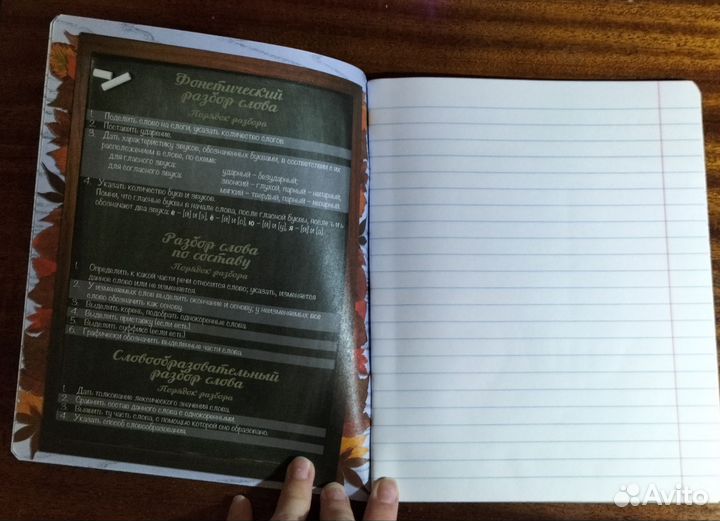 Фонетический
разбор слова
Порядок разбора
1. Поделить слово на слоги, указать количество слогов.
2. Поставить ударение.
3. Дать характеристику звуков, обозначенных буквами, в соответствии с их
расположением в слове, по схеме:
для гласного звука: ударный – безударный;
для согласного звука: звонкий – глухой, парный – непарный,
мягкий – твердый, парный – непарный.
4. Указать количество букв и звуков.
Помни, что гласные буквы в начале слова, после гласной буквы, после ъ и ь
обозначают два звука: е – [й] и [э], ё – [й] и [о], ю – [й] и [у], я – [й] и [а].
Разбор слова
по составу
Порядок разбора
1. Определить к какой части речи относится слово; указать, изменяется
данное слово или не изменяется.
2. У изменяемых слов выделить окончание и основу, у неизменяемых все
слово обозначить как основу.
3. Выделить корень, подобрать однокоренные слова.
4. Выделить приставку (если есть).
5. Выделить суффикс (если есть).
6. Графически обозначить выделенные части слова.
Словообразовательный
разбор слова
Порядок разбора
1. Дать толкование лексического значения слова.
2. Сравнить состав данного слова с однокоренными.
3. Выявить ту часть слова, с помощью которой оно образовано.
4. Указать способ словообразования.
Avito